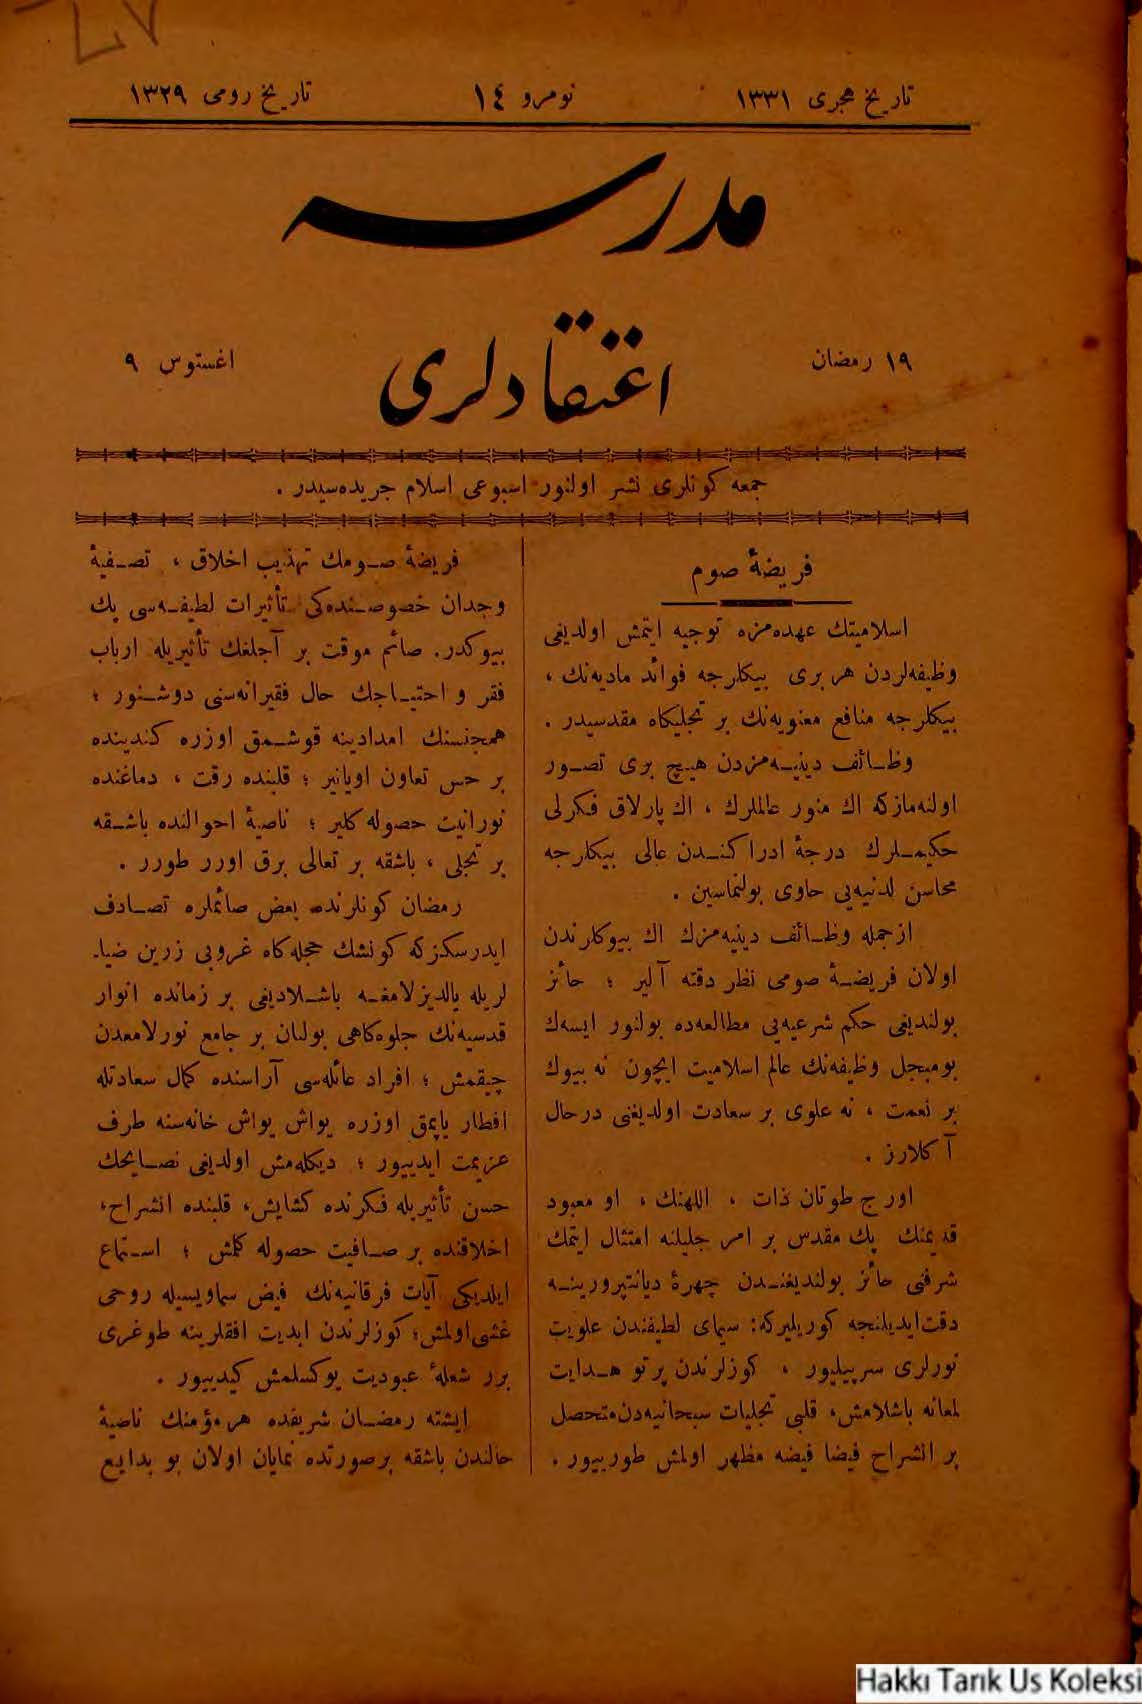 تاريخ هجرى ١٣٣١
نومرو ١٤
تاريخ رومى ١٣٢٩
مدرسه
اعتقادلرى
١٩ رمضان
اغستوس ٩
جمعه كونلرى نشر اولنور اسبوعى اسلام جريده‌سيدر .
فريضۀ صوم
اسلاميتك عهده‌مزه توجيه ايتمش اولديغى
وظيفه‌لردن هربرى بيكلرجه فوائد ماديه‌نك ،
بيكلرجه منافع معنويه‌نك بر تجليكاه مقدسيدر .
وظائف دينيه‌مزدن هيچ برى تصور
اولنه‌مازكه اك منور عالملرك ، اك پارلاق فكرلى
حكيملرك درجۀ ادراكندن عالى بيكلرجه
محاسن لدنيه‌يى حاوى بولنماسين .
ازجمله وظائف دينيه‌مزك اك بيوكلرندن
اولان فريضۀ صومى نظر دقته آلير ؛ حائز
بولنديغى حكم شرعيه‌يى مطالعه‌ده بولنور ايسه‌ك
بومبجل وظيفه‌نك عالم اسلاميت ايچون نه بيوك
بر نعمت ، نه علوى بر سعادت اولديغنى درحال
آ كلارز .
اورج طوتان ذات ، اللهنك ، او معبود
قديمنك پك مقدس بر امر جليلنه امتثال ايتمك
شرفنى حائز بولنديغندن چهرۀ ديانتپرورينه
دقت‌ايديلنجه كوريليركه: سيماى لطيفندن علويت
نورلرى سرپيليور ، كوزلرندن پرتو هدايت
لمعانه باشلامش، قلبى تجليات سبحانيه‌دن‌متحصل
بر انشراح فيضا فيضه مظهر اولمش طورييور .
فريضۀ صومك تهذيب اخلاق ، تصفيۀ
وجدان خصوصنده‌كى تأثيرات لطيفه‌سى پك
بيوكدر. صائم موقت بر آجلغك تأثيريله ارباب
فقر و احتياجك حال فقيرانه‌سنى دوشنور ؛
همجنسنك امدادينه قوشمق اوزره كندينده
بر حس تعاون اويانير ؛ قلبنده رقت ، دماغنده
نورانيت حصوله كلير ؛ ناصيۀ احوالنده باشقه
بر تجلى ، باشقه بر تعالى برق اورر طورر .
رمضان كونلرنده بعض صائملره تصادف
ايدرسكزكه كونشك حجله‌كاه غروبى زرين ضيا-
لريله يالديزلامغه باشلاديغى بر زمانده انوار
قدسيه‌نك جلوه‌كاهى بولنان بر جامع نورلامعدن
چيقمش ؛ افراد عائله‌سى آراسنده كمال سعادتله
افطار ياپمق اوزره يواش يواش خانه‌سنه طرف
عزيمت ايدييور ؛ ديكله‌مش اولديغى نصايحك
حسن تأثيريله فكرنده كشايش، قلبنده انشراح،
اخلاقنده بر صافيت حصوله كلمش ؛ استماع
ايلديكى آيات فرقانيه‌نك فيض سماويسيله روحى
غشى‌اولمش؛ كوزلرندن ابديت افقلرينه طوغرى
برر شعلۀ عبوديت يوكسلمش كيدييور .
ايشته رمضان شريفده هرمؤمنك ناصيۀ
حالندن باشقه برصورتده نمايان اولان بو بدايع
Hakkı Tarık Us Koleksi